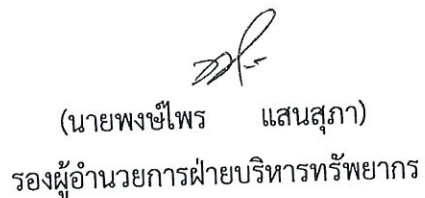 (นายพงษ์ไพร แสนสุภา)
รองผู้อำนวยการฝ่ายบริหารทรัพยากร